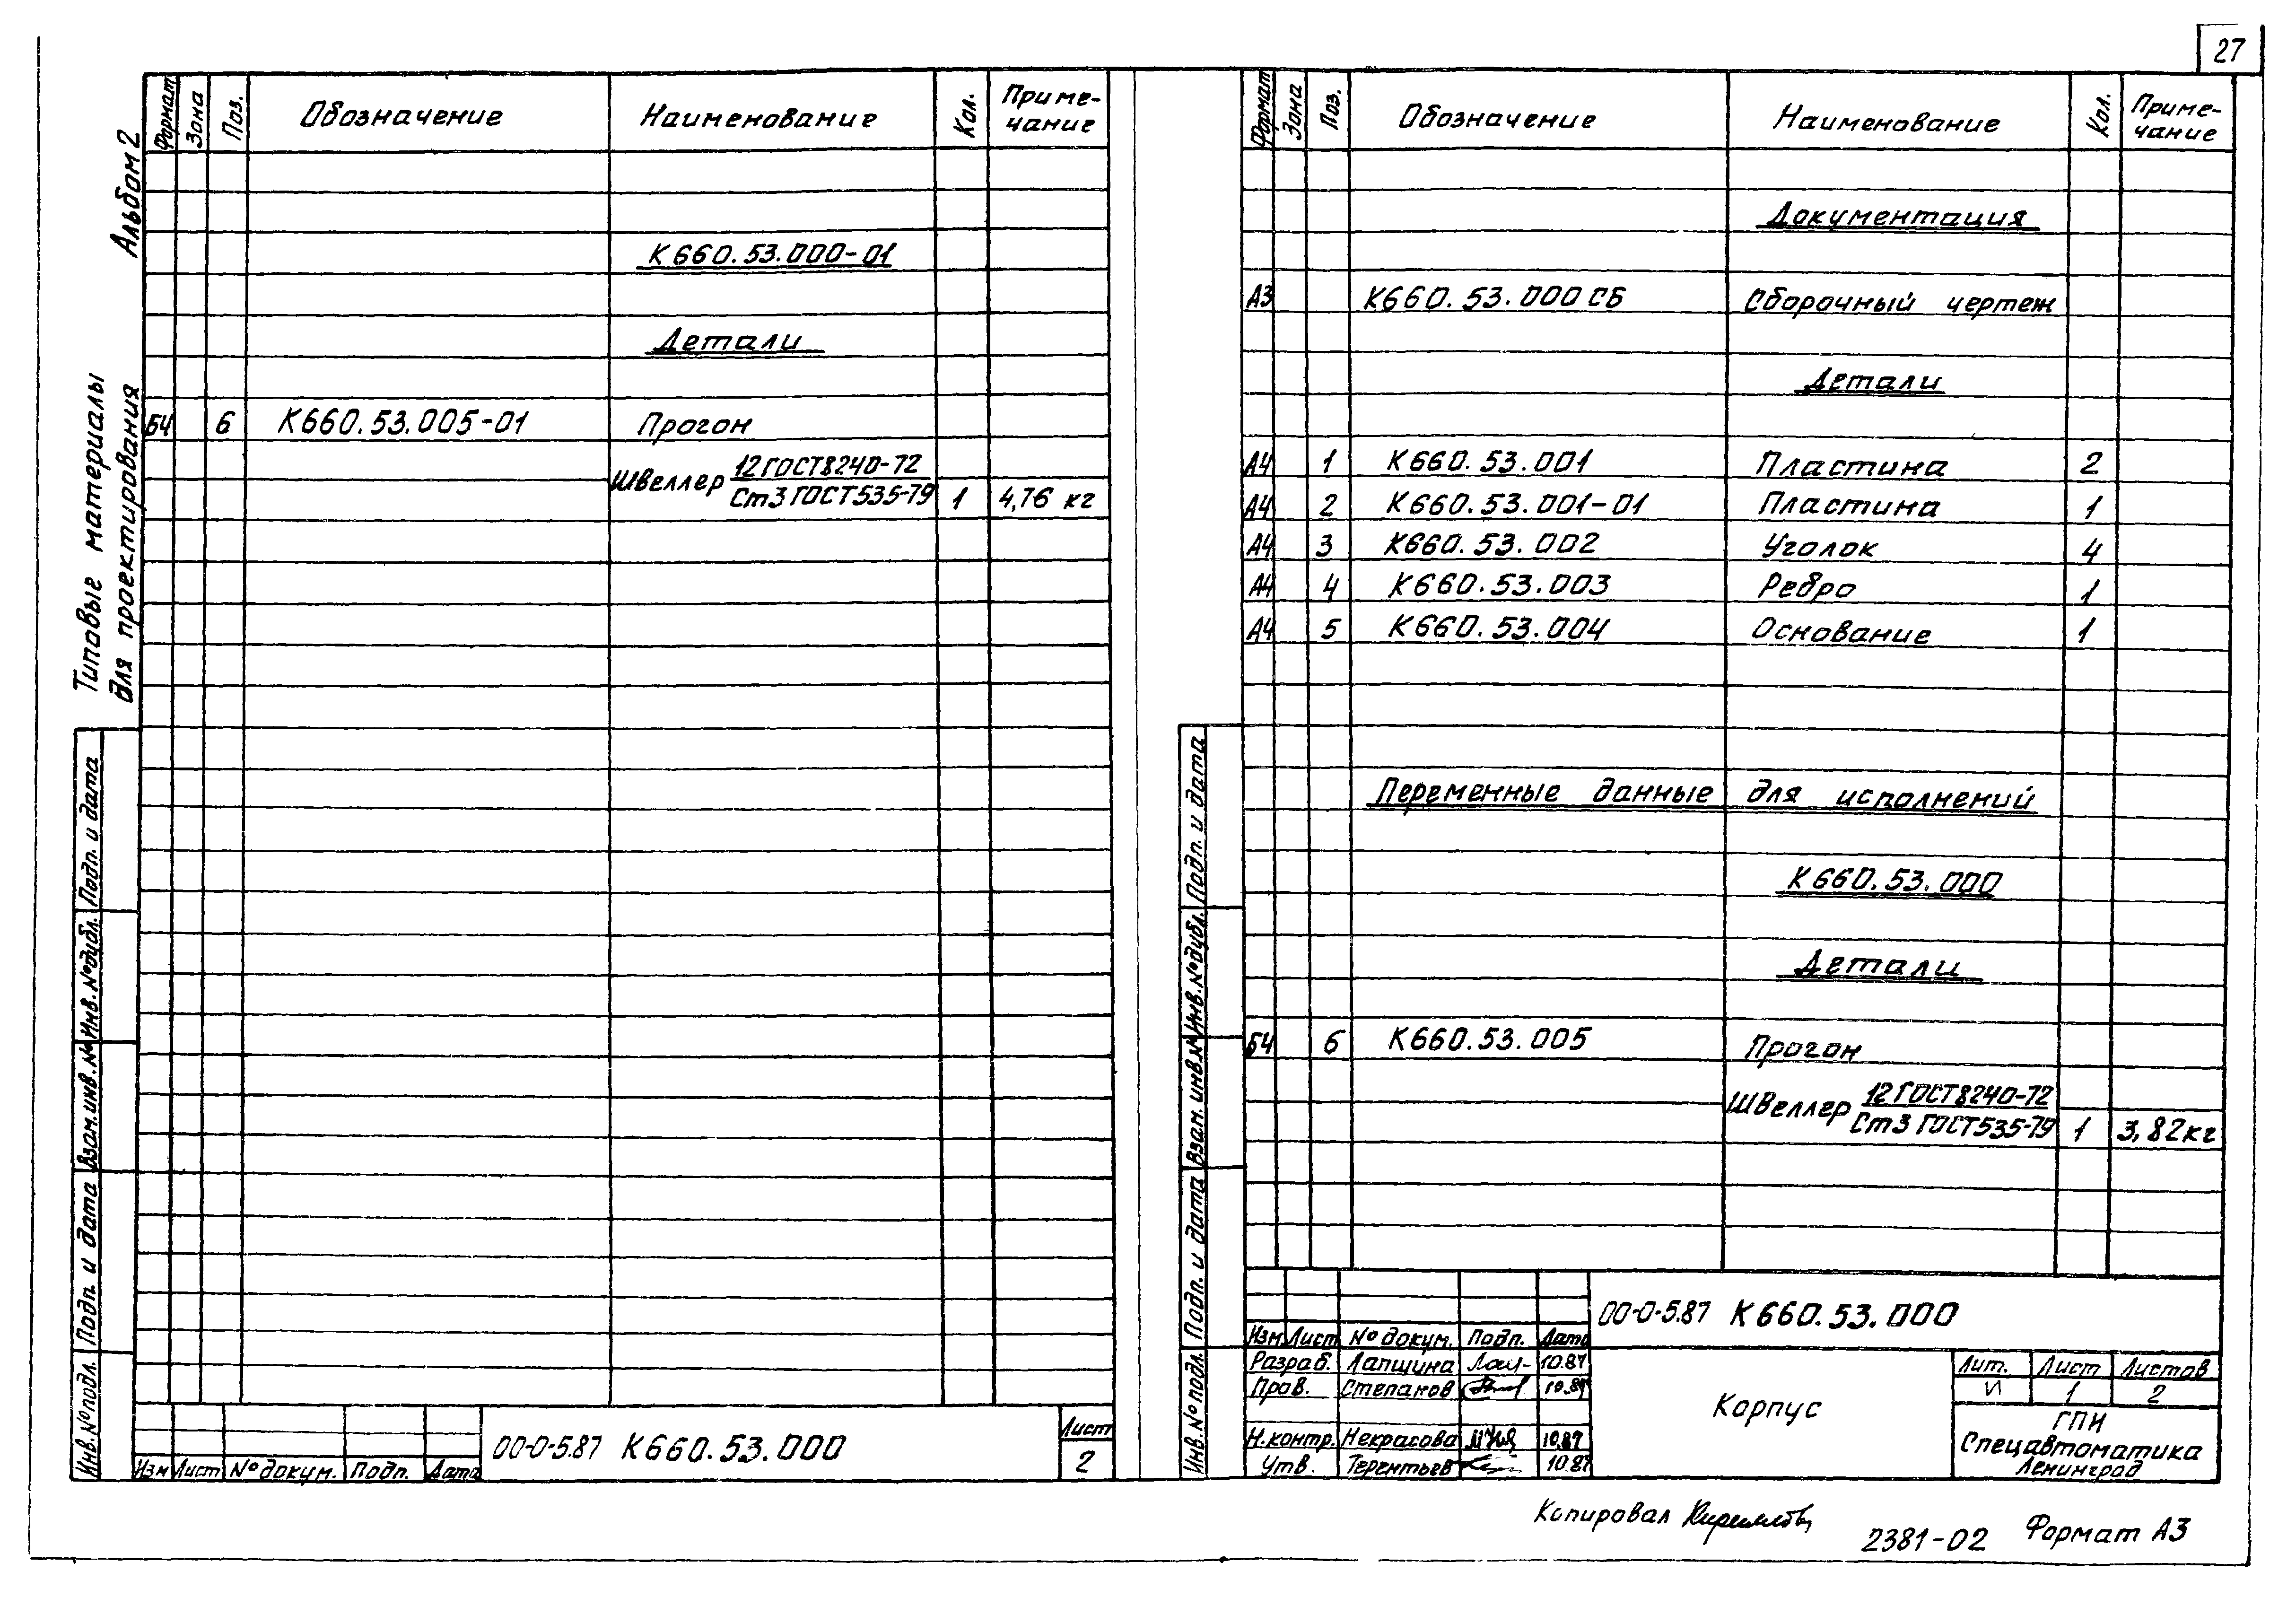 27
Альбом 2
Типовые материалы
для проектирования
Формат Зона Поз. Обозначение Наименование Кол. Приме-
чание
К660.53.000-01
Детали
Б4 6 К660.53.005-01 Прогон
Швеллер 12 ГОСТ 8240-72
Ст3 ГОСТ 535-79 1 4,76 кг
Подп. и дата
Инв. № дубл.
Взам. инв. №
Подп. и дата
Инв. № подл.
Изм Лист № докум. Подп. Дата
00-0-5.87 К660.53.000
Лист
2
Формат Зона Поз. Обозначение Наименование Кол. Приме-
чание
Документация
А3 К660.53.000 СБ Сборочный чертеж
Детали
А4 1 К660.53.001 Пластина 2
А4 2 К660.53.001-01 Пластина 1
А4 3 К660.53.002 Уголок 4
А4 4 К660.53.003 Ребро 1
А4 5 К660.53.004 Основание 1
Переменные данные для исполнений
К660.53.000
Детали
Б4 6 К660.53.005 Прогон
Швеллер 12 ГОСТ 8240-72
Ст3 ГОСТ 535-79 1 3,82 кг
Подп. и дата
Инв. № дубл.
Взам. инв. №
Подп. и дата
Инв. № подл.
00-0-5.87 К660.53.000
Изм Лист № докум. Подп. Дата
Разраб. Лапшина 10.87
Пров. Степанов 10.87
Н.контр. Некрасова 10.87
Утв. Терентьев 10.87
Корпус
Лит. Лист Листов
И 1 2
ГПИ
Спецавтоматика
Ленинград
Копировал
2381-02 Формат А3